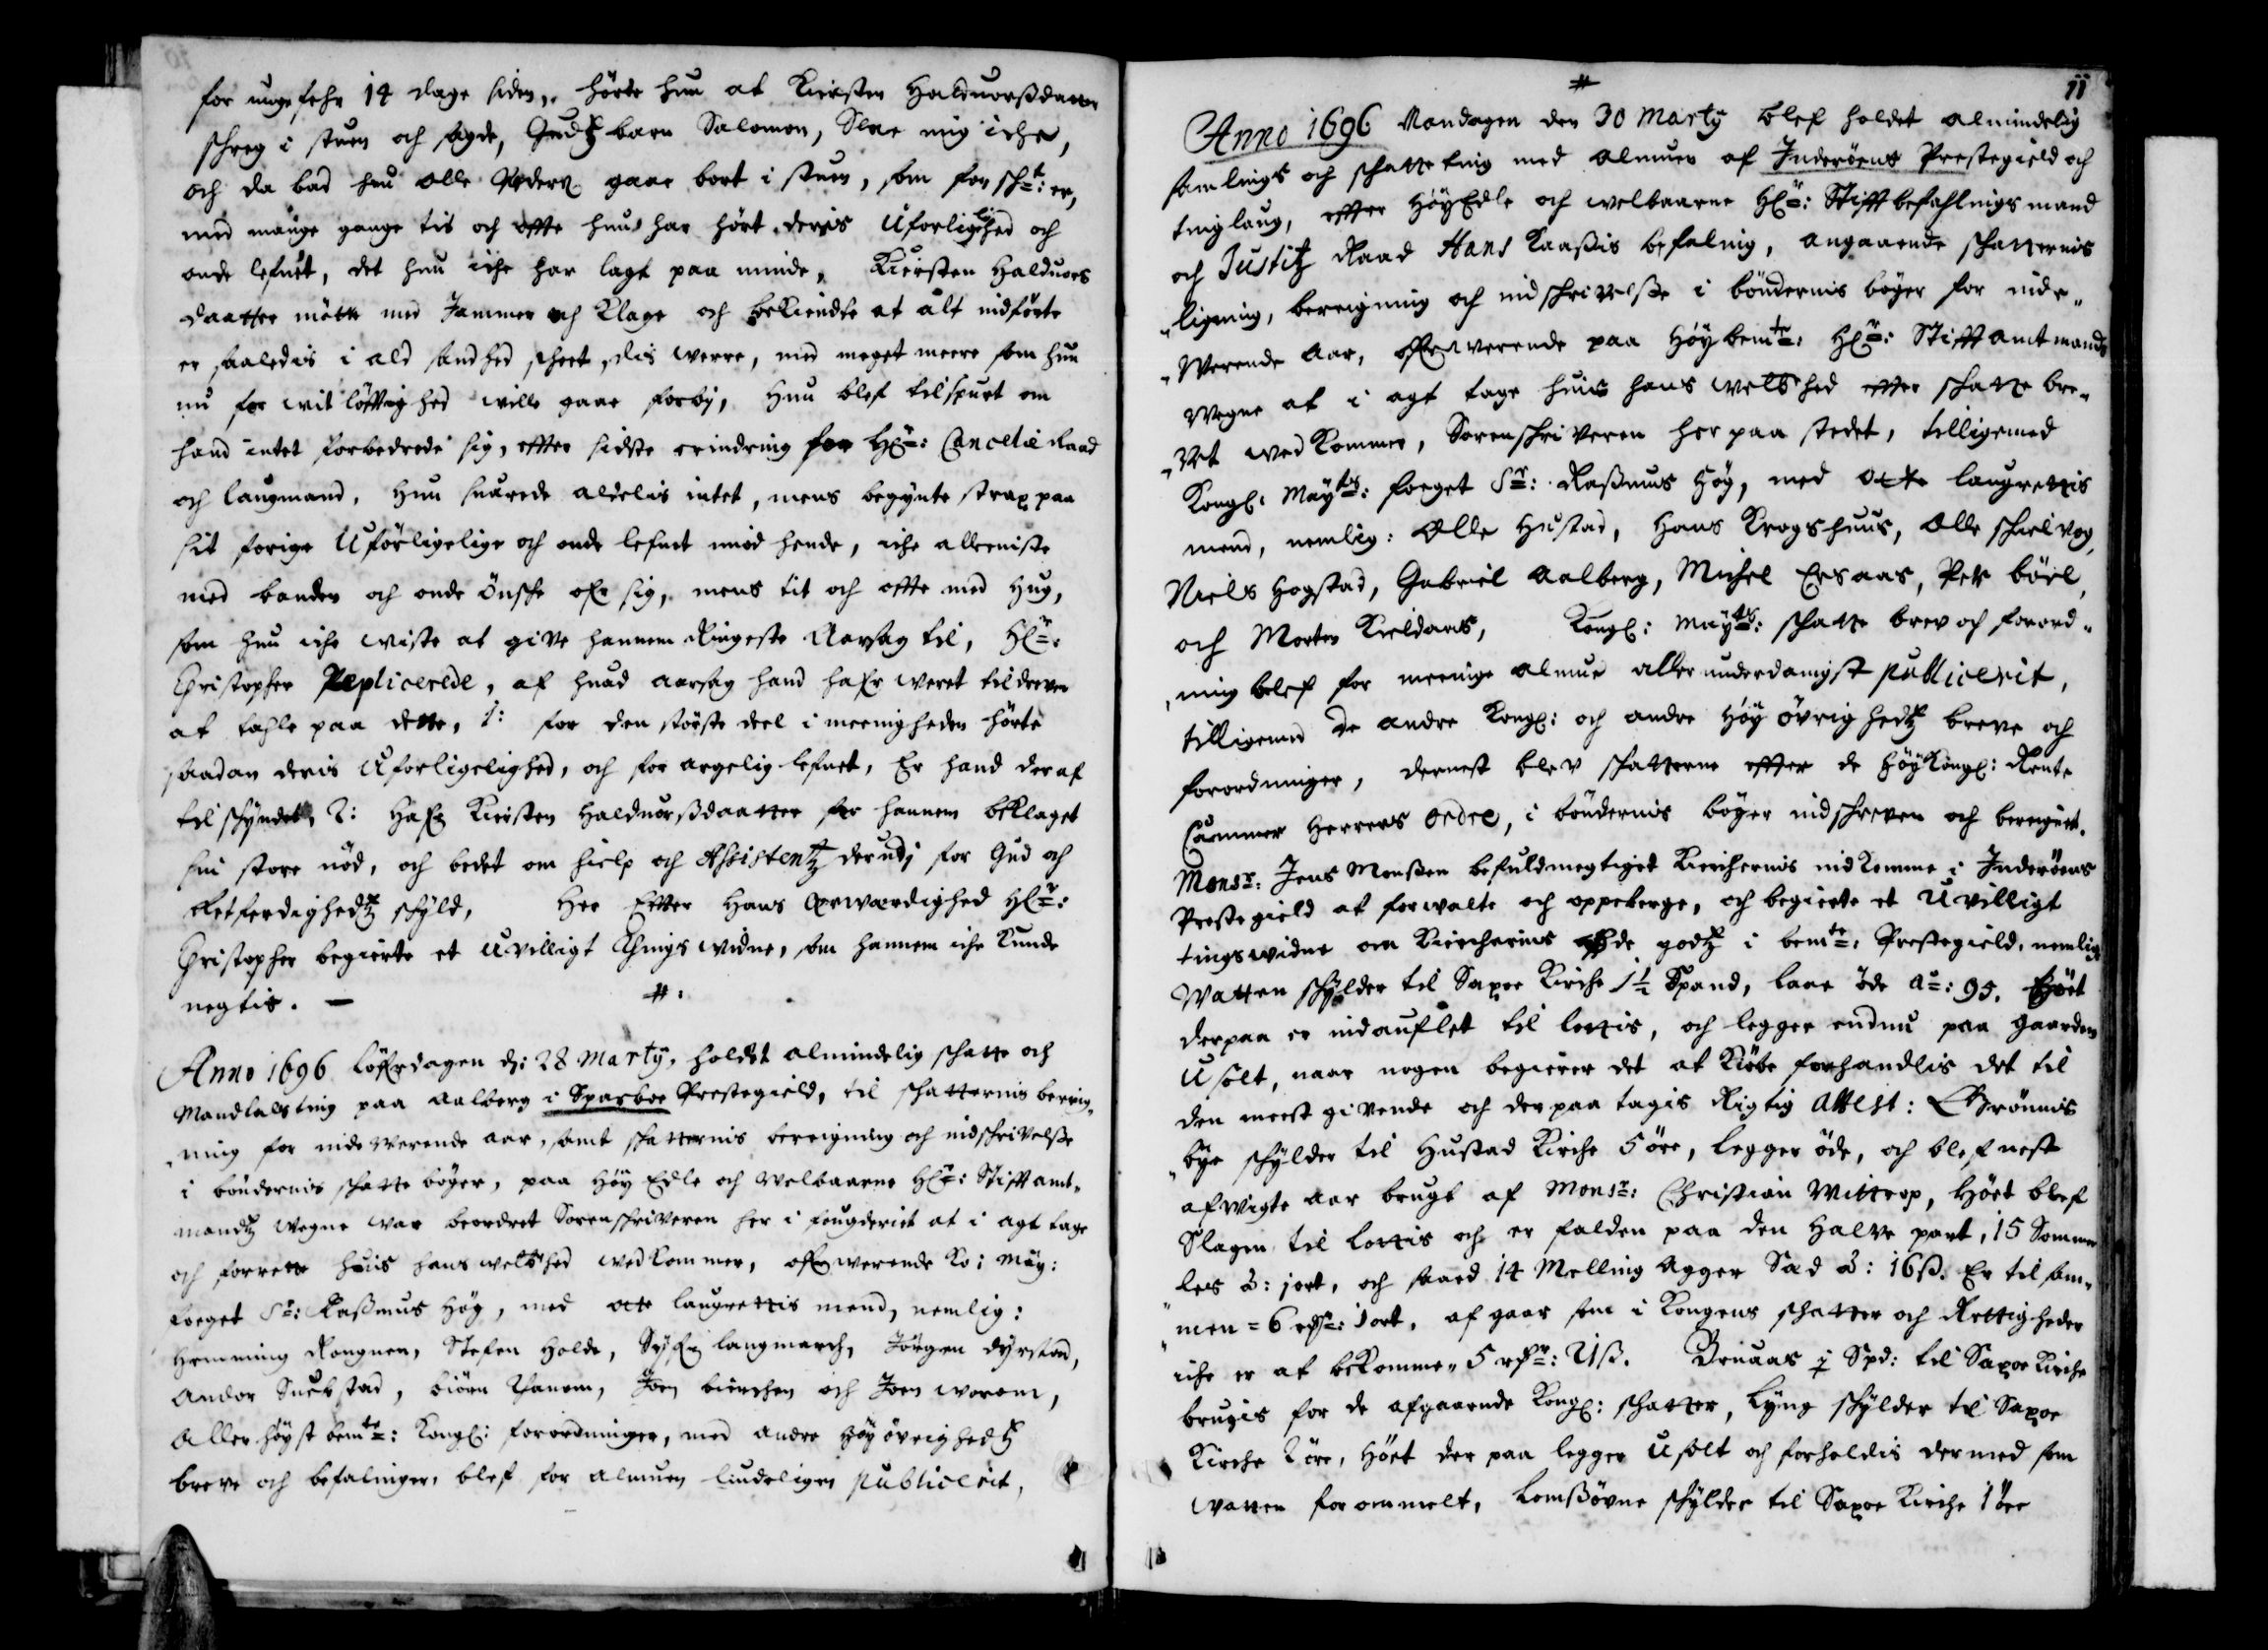 for ungefehr 14 dage siden, hörte hun at Kiersten Halduorßdatter
schreg i stuen och sagde, Gudtz barn Salomon, Slae mig iche,
och da bad hun Olle gaae bort i stuen, som for sch=t: er,
med mange gange tit och offte hun har hört deris Uforliglihed och
onde lefnet, det hun iche har lagt paa minde, Kiersten Halduors
daatter mötte med Jammer och Klage och bekiendte at alt indförte
er saaledis i ald sandhed scheet, dis werre, med meget meere som hun
nu for witlöfftighed wille gaae forbj, Hun blef tilspurt om
hand intet forbedrede sig, effter sidste erindring for Hr: Cancelie Raad
och laugmand, Hun suarede aldelis intet, mens begynte strax paa
sit forige Uforligelige och onde lefnet imod hende, iche alleeniste
med banden och onde önsche ofr sig, mens tit och offte med Hug,
som hun iche wiste at give hannem Ringeste Aarsag til, Hr:
Christopher Repliceerede, af huad aarsag hand hafr weret tildreven
at tahle paa dette, 1: for den störste deel i meenigheden hörte
saadan deris Uforligelighed, och for argelig lefnet, Er hand deraf
tilschyndet, 2: Hafr Kiersten Halduorßdaatter for hannem beklaget
sin store nöd, och bedet om hielp och Assistentz derudj for Gud och
Retferdighedtz schyld, Her Effter Hans Ærwærdighed Hr:
Christopher begierte et uvilligt Things widne, som hannem iche kunde
negtis. —
#.
Anno 1696 Löfverdagen d: 28 Marty, holdt almindelig schatte och
Mandtals ting paa Aalberg i Sparboe Prestegield, til schatternis bereig„
„ning for indeverende aar, samt schatternis bereigning och indschrivelsse
i böndernis schatte böger, paa Höy Edle och Welbaarne Hr: Stifftamt„
mandtz wegne war beordret Sorenschriveren her i fougderiet at i agt tage
och forrette huis hans welbhed wedkommer, ofrwerende Ko: May:
foeget Sr: Raßmus Hög, med otte laugrettis mend, nemlig:
Hemming Rongnen, Stefen Holde, Syfr langmarch, Jörgen dyrstad,
Andor Suebstad, biörn Thanem, Joen birchen och Joen worom,
Aller höyst bemte: Kongl: forordninger, med andre Höy övrighedtz
breve och befalinger, blef for almuen liudeligen publicerit,
#
11
Anno 1696 Mandagen den 30 Marty blef holdet almindelig
samlings och schatte ting med almuen af Inderöens Prestegield och
tinglaug, effter HöyEdle och welbaarne Hr: Stifftbefahlings mand
och Justitz Raad Hans Kaaßis befaling, angaaende schatternis
„ligning, bereigning och indschrivelsse i böndernis böger for inde„
„Werende Aar, Ofrwerende paa Höybemte: Hr: Stifftamtmands
Wegne at i agt tage huis hans welbhed effter schatte bre„
„Vet wedkommer, Sorenschriveren her paa stedet, tilligemed
Kongl: Mayts: foeget Sr: Raßmus Hög, med otte laugrettis
mend, nemlig: Olle Hustad, Hans Krogshuus, Olle schielvog,
Niels Hogstad, Gabriel Aalberg, Michel Ersaas, Peter böel,
och Morten Kieldaas, Kongl: Mayts: schatte brev och forord„
„ning blef for meenige almue allerunderdanigst publicerit,
tilligemed de andre Kongl: och andre Höy övrighedtz breve och
forordninger, dernest blev schatterne effter de HöyKongl: Rente
Cammer Herrers ordre, i böndernis böger indschreven och bereignet.
Monsr: Jens Monßen befuldmegtiget Kirchernis indkomme i Inderöens
Prestegield at forwalte och oppeberge, och begierte et Uvilligt
tingswidne om Kirchernis öde godtz i bemte: Prestegield, nemlig
Watten schylder til Saxoe Kirche 1½ Spand, laae öde Ao: 95, Höet
derpaa er indauflet til lottis, och legger endnu paa gaarden
Usölt, naar nogen begierer det at Kiöbe forhandlis det til
den meest givende och derpaa tagis Rigtig Attest: Grönnis
„bye schylder til Hustad Kirche 5 öre, legger öde, och blef nest
afvigte Aar brugt af Monsr: Christian Wittrop, Höet blef
Slagen til Lottis och er falden paa den Halve part, 15 Sommer
les à: 1ort, och saaed 14 Melling Agger Sæd à: 16ß. Er til sam„
„men = 6 rdr: 1ort, af gaar som i Kongens schatter och Rettigheder
iche er at bekomme, 5 rdr: 21ß. Bruaas ½ Spd: til Saxoe Kirche
brugis for de afgaaende Kongl: schatter, Lyng schylder til Saxoe
Kirche 2 öre, Höet der paa legger Usölt och forholdis dermed som
watten forommelt, Lomßöyne schylder til Saxoe Kirche 1 öre